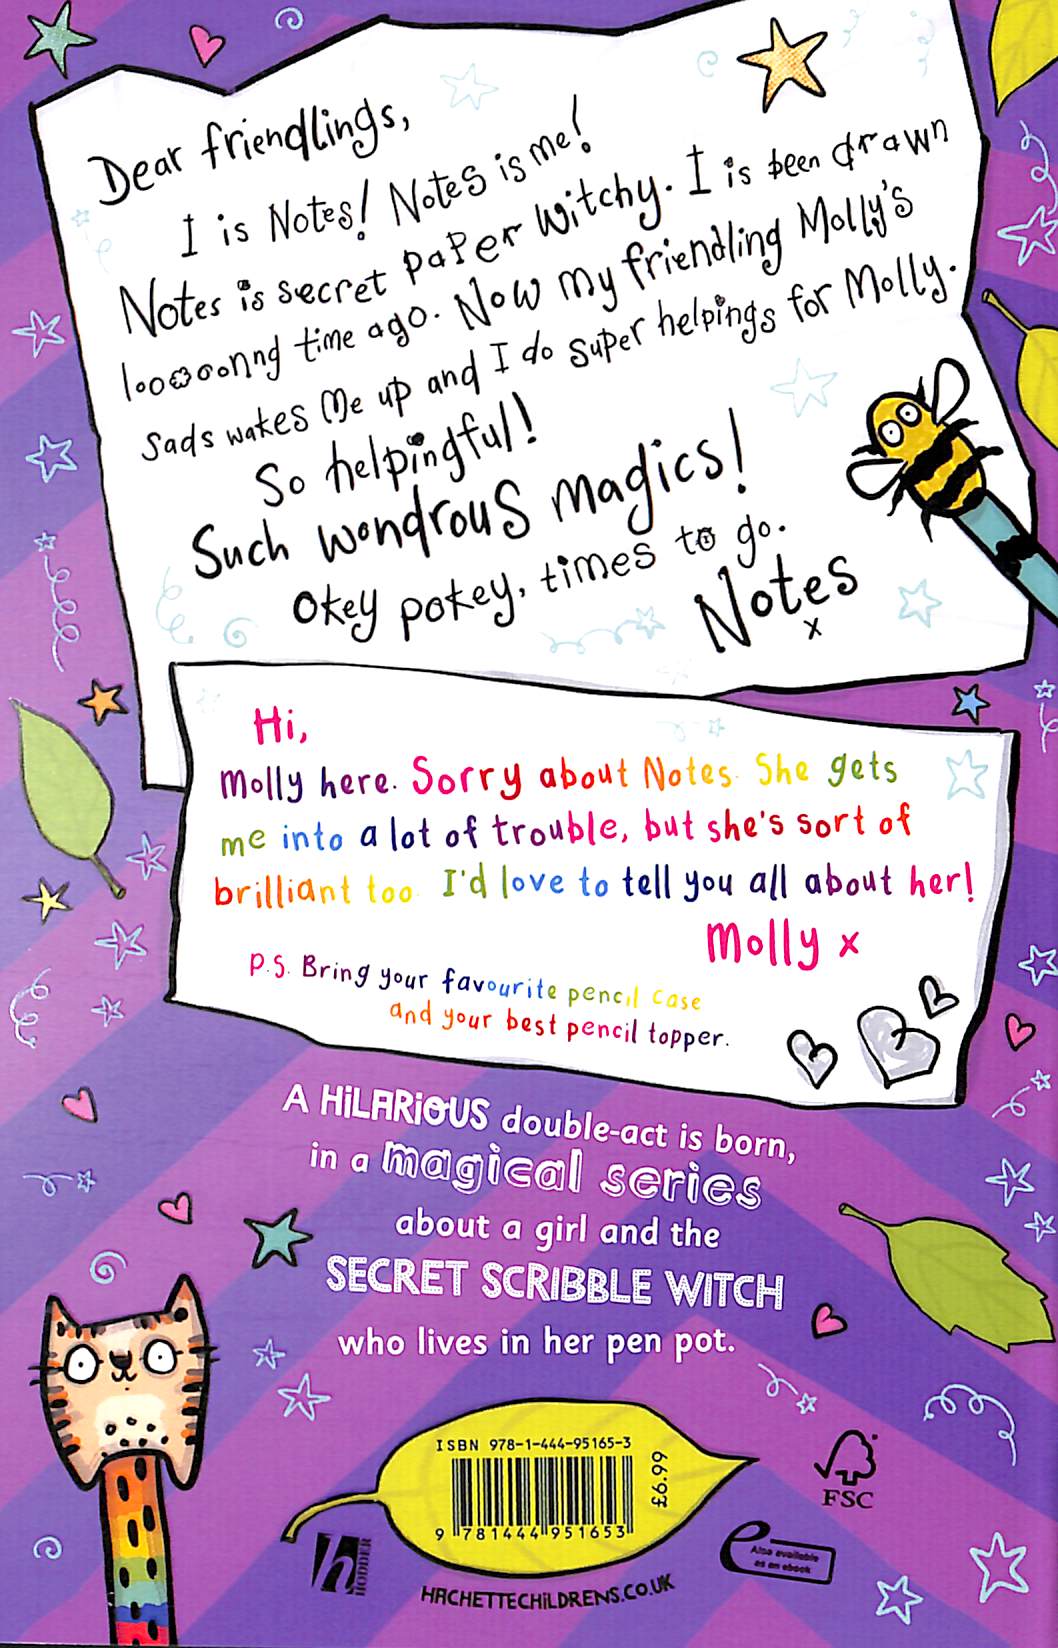 Dear friendlings,
I is Notes! Notes is me!
Notes is secret paper witchy. I is been drawn
looooonng time ago. Now my friendling Molly's
sads wakes me up and I do super helpings for Molly.
So helpingful!
Such wondrous magics!
Okey pokey, times to go.
Notes
x
Hi,
Molly here. Sorry about Notes. She gets
me into a lot of trouble, but she's sort of
brilliant too. I'd love to tell you all about her!
Molly x
P.S. Bring your favourite pencil case
and your best pencil topper.
A HiLARiOUS double-act is born,
in a magical series
about a girl and the
SECRET SCRIBBLE WITCH
who lives in her pen pot.
ISBN 978-1-444-95165-3
£6.99
9 781444 951653
h HODDER
HACHETTECHiLDRENS.CO.UK
FSC
e Also available
as an ebook